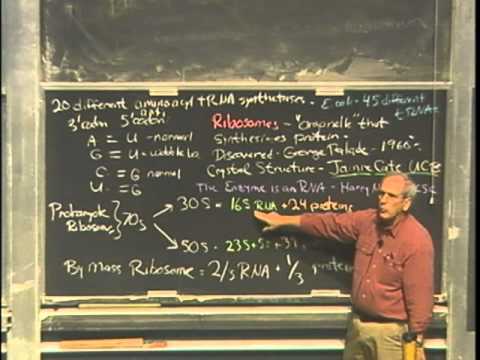 20 different aminoacyl tRNA synthetases - E. coli - 45 different tRNAs
3' codon 5' anti codon
A = U - normal
G = U - wobble
C = G - normal
U = G
Ribosomes - "organelle" that
Synthesizes protein.
Discovered - George Palade - 1960
Crystal Structure - Jamie Cate UCB
The Enzyme is an RNA - Harry
Prokaryote Ribosome } 70S
30S = 16S RNA + 24 proteins
50S = 23S + 5S +
By Mass Ribosome = 2/3 RNA + 1/3 protein